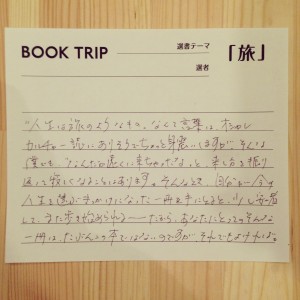 BOOK TRIP
選書テーマ
「旅」
選者
"人生は旅のようなもの"なんて言葉は、オシャレ
カルチャー誌にありそうでちょっと身震いしますが、そんな
僕でも "なんだか遠くに来ちゃったな" と、来し方を振り
返って寂しくなることはあります。そんなとき、自分が今の
人生を選ぶきっかけになった一冊を手にとると、少し安心
して、また歩き始められる――だから、あなたにとってのそんな
一冊は、たぶんこの本ではないのですが、それでもよければ。